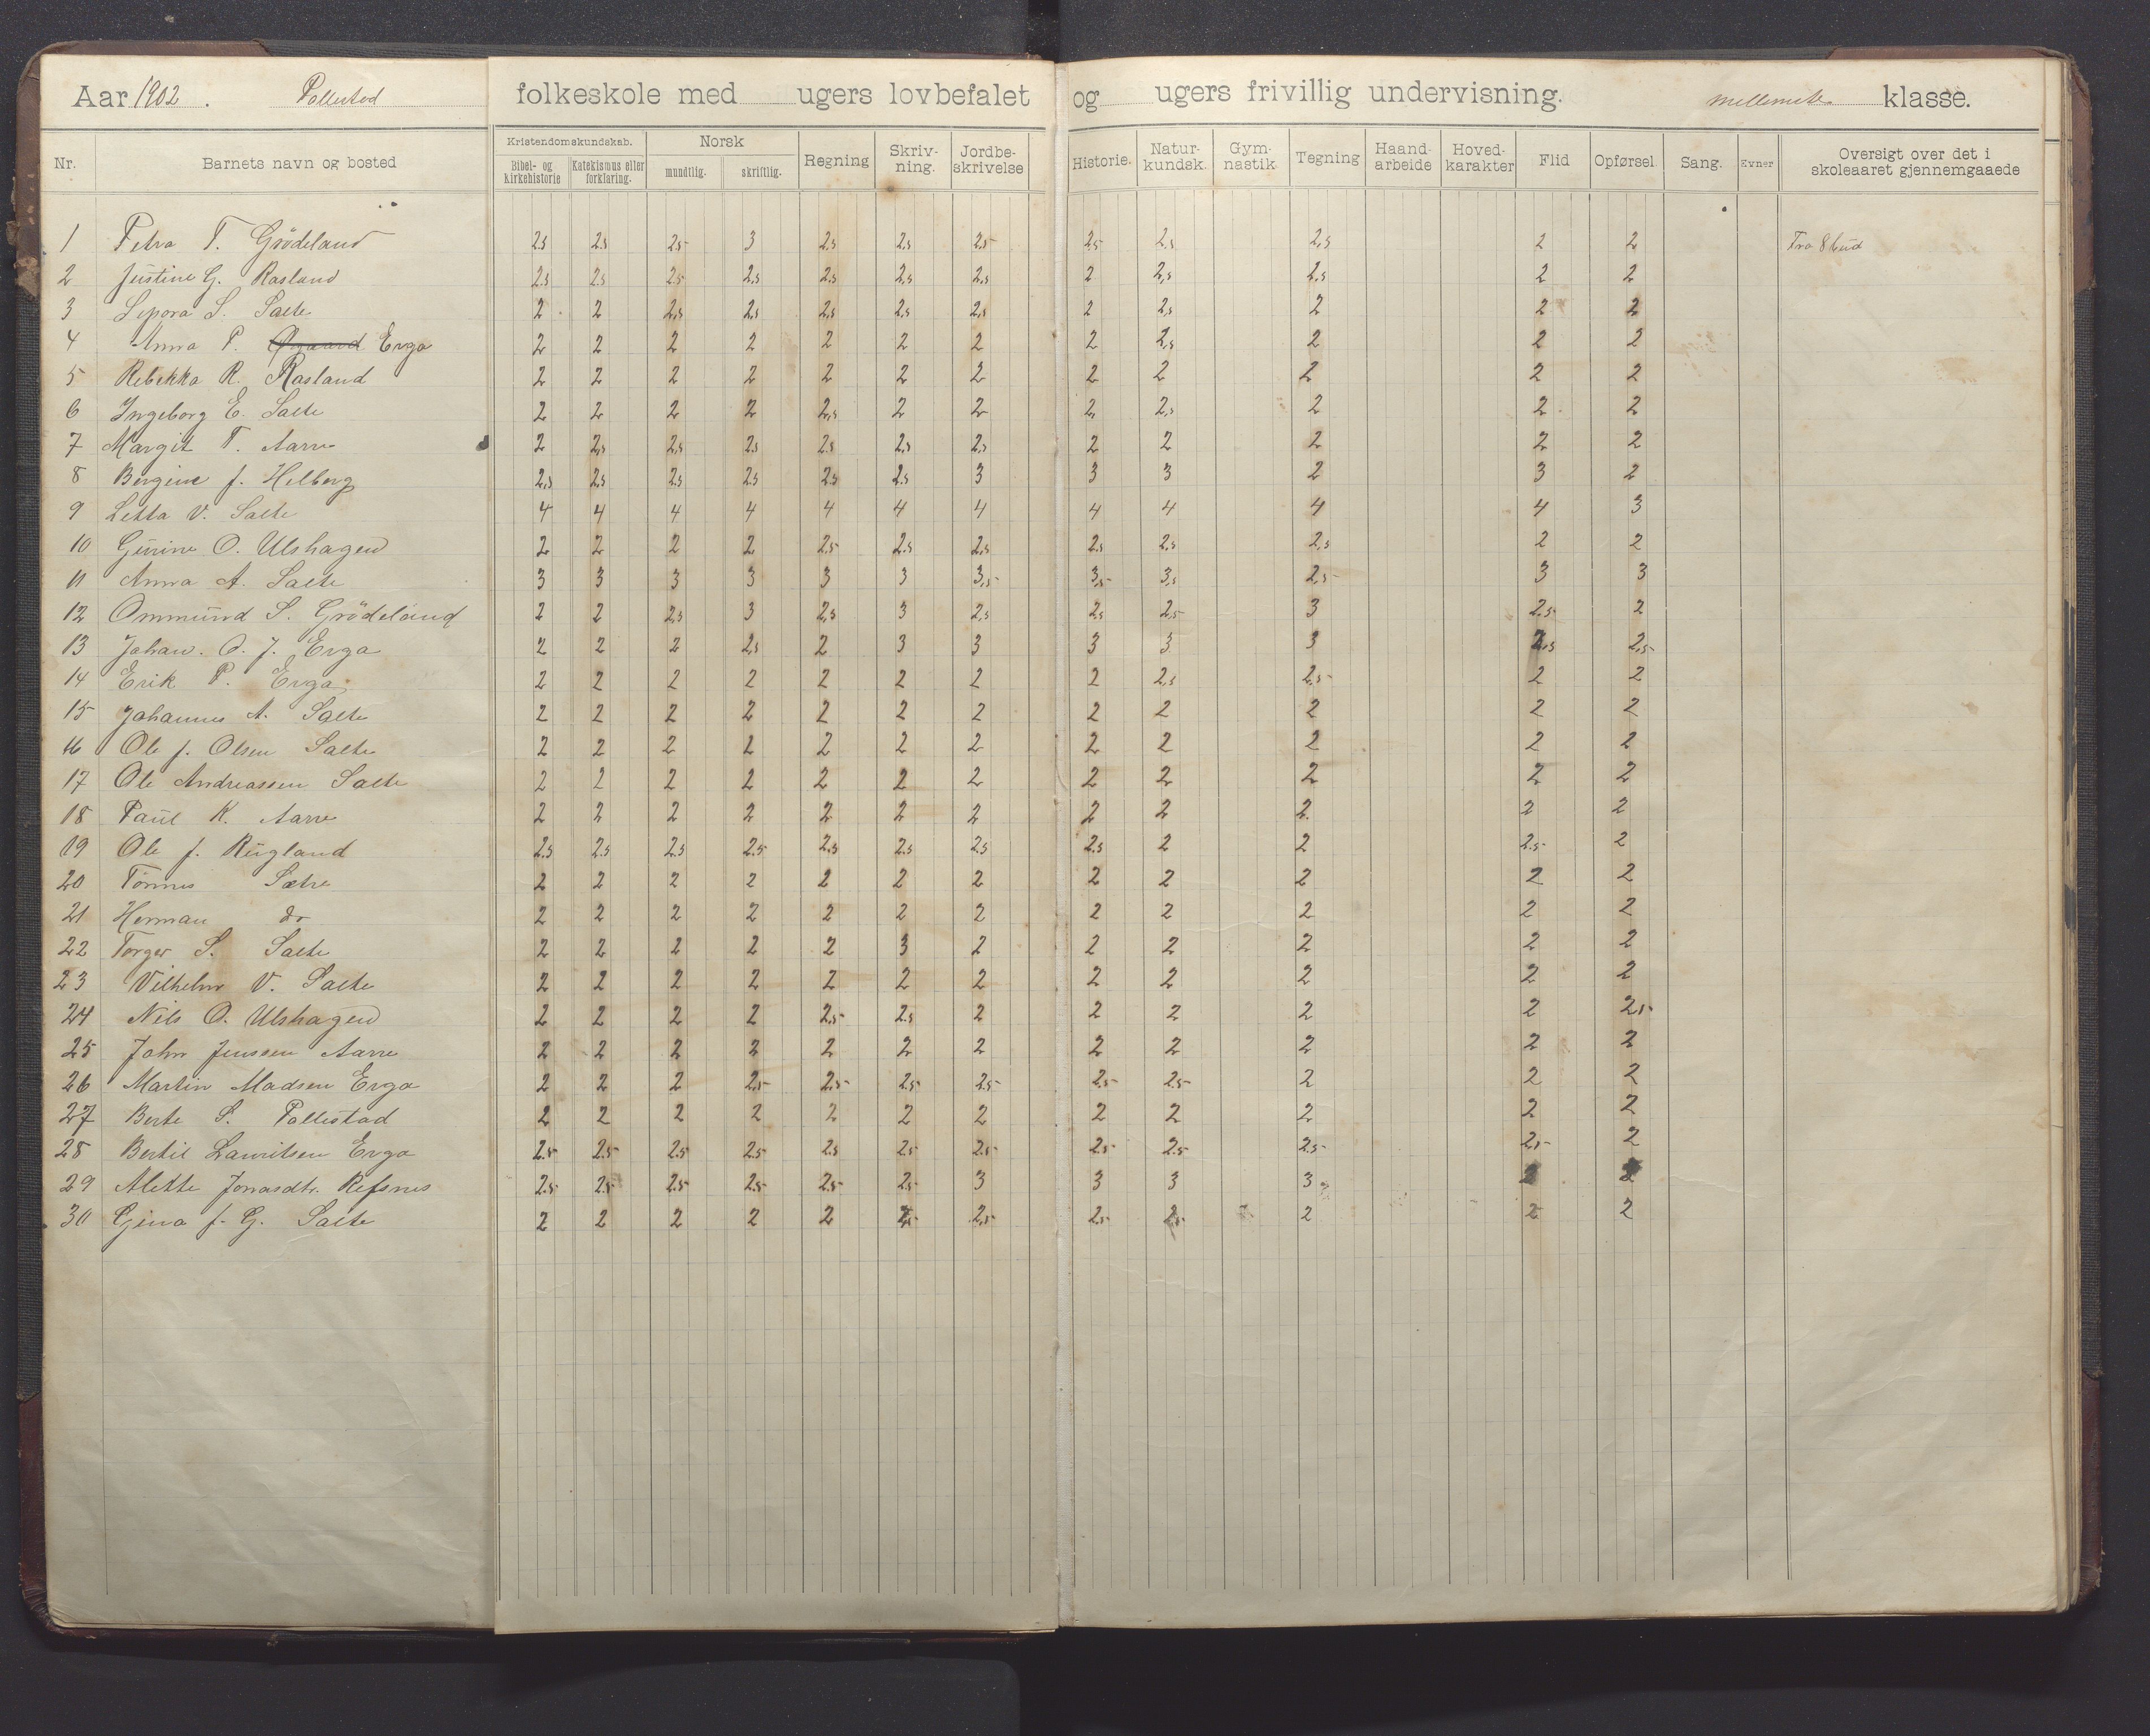 Aar 1902. Pollestad folkeskole med ugers lovbefalet og ugers frivillig undervisning. mellemste klasse.
Nr. Barnets navn og bosted Kristendomskundskab. Bibel- og kirkehistorie Katekismus eller forklaring. Norsk mundtlig. skriftlig. Regning Skriv-ning. Jordbe-skrivelse Historie. Natur-kundsk. Gym-nastik Tegning Haand-arbeide Hoved-karakter Flid Opførsel Sang. Evner Oversigt over det i skoleaaret gjennemgaaede
1 Petra T. Grödeland 2.5 2.5 2.5 3 2.5 2.5 2.5 2.5 2.5 2.5 2 2 Fra 8 bud
2 Justine G. Rasland 2.5 2.5 2.5 2.5 2.5 2.5 2.5 2 2.5 2.5 2 2
3 Sepora S. Salte 2 2 2.5 2.5 2.5 2.5 2.5 2 2.5 2 2 2
4 Anna P. Erga 2 2 2 2 2 2 2 2 2.5 2 2 2
5 Rebekka R. Rasland 2 2 2 2 2 2 2 2 2 2 2 2
6 Ingeborg E. Salte 2 2 2 2 2.5 2 2 2 2.5 2 2 2
7 Margit T. Aarre 2 2.5 2.5 2.5 2.5 2.5 2.5 2 2 2 2 2
8 Bergine J. Helberg 2.5 2.5 2.5 2.5 2.5 2.5 3 3 3 2 3 2
9 Letta V. Salte 4 4 4 4 4 4 4 4 4 4 4 3
10 Gurine O. Ulshagen 2 2 2 2 2.5 2.5 2.5 2.5 2.5 2.5 2 2
11 Anna A. Salte 3 3 3 3 3 3 3,5 3,5 3,5 2,5 3 3
12 Ommund S. Grödeland 2 2 2.5 3 2.5 3 2.5 2.5 2.5 3 2.5 2
13 Johan. O. J. Erga 2 2 2 2.5 2 3 3 3 3 3 2.5 2.5
14 Erik P. Erga 2 2 2 2 2 2 2 2 2.5 2.5 2 2
15 Johannes A. Salte 2 2 2 2 2 2 2 2 2 2 2 2
16 Ole J. Olsen Salte 2 2 2 2 2 2 2 2 2 2 2 2
17 Ole Andreassen Salte 2 2 2 2 2 2 2 2 2 2 2 2
18 Paul K. Aarre 2 2 2 2 2 2 2 2 2 2 2 2
19 Ole J. Rugland 2.5 2.5 2.5 2.5 2.5 2.5 2.5 2.5 2 2 2.5 2
20 Tönnes Sætre 2 2 2 2 2 2 2 2 2 2 2 2
21 Herman do 2 2 2 2 2 2 2 2 2 2 2 2
22 Torger S. Salte 2 2 2 2 2 3 2 2 2 2 2 2
23 Vilhelm V. Salte 2 2 2 2 2 2 2 2 2 2 2 2
24 Nils O. Ulshagen 2 2 2 2 2.5 2.5 2 2 2 2 2 2.5
25 John Jenssen Aarre 2 2 2 2 2 2 2 2 2 2 2 2
26 Martin Madsen Erga 2 2 2 2.5 2.5 2.5 2.5 2.5 2.5 2 2 2
27 Berte S. Pollestad 2 2 2 2 2 2 2 2 2 2 2 2
28 Bertil Lauritsen Erga 2.5 2.5 2.5 2.5 2.5 2.5 2.5 2.5 2.5 2.5 2.5 2
29 Alette Jonasdtr. Refsnes 2.5 2.5 2.5 2.5 2.5 2.5 3 3 3 3 2 2
30 Gina J. G. Salte 2 2 2 2 2 2.5 2.5 2.5 2.5 2 2 2